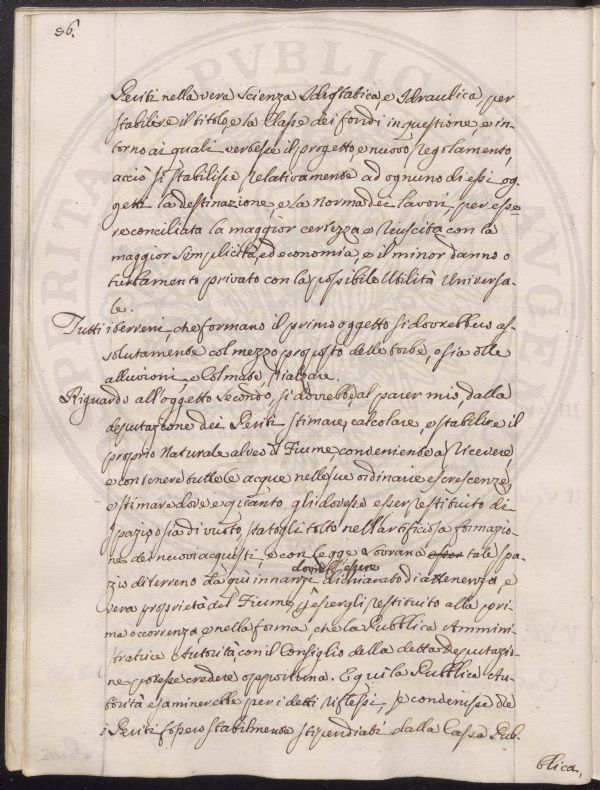 86.
Periti nella vera Scienza Idrostatica, e Idraulica, per
stabilire il titolo, e la Classe dei fondi in questione, e in-
torno ai quali verbesse il progetto, e nuovo regolamento,
acciò si stabilisse relativamente ad ognuno di essi og-
getti la destinazione, e la norma dei lavori, per esse
reconciliata la maggior certezza e riuscita con la
maggior Simplicità, ed economia, e il minor danno o
turbamento privato con la possibile Utilità Universa-
le.
Tutti i terreni, che formano il primo oggetto si dovrebbero as-
solutamente col mezzo proposto delle torbe, o sia colle
alluvioni e Colmate, rialzare.
Riguardo all'oggetto Secondo, si dovrebbe, al parer mio, dalla
deputazione dei Periti stimare, calcolare, e stabilire il
proprio Naturale alveo d'Fiume, conveniente a Ricevere,
e contenere tutte le acque nelle sue ordinarie escrescenze,
e stimare dove e quanto gli dovesse esser restituito di
spazio o sia di vuoto statogli tolto nell'artificiosa formazio-
ne dei nuovi acquisti, e con Legge Sovrana tale spa-
dovrebb'essere
zio di terreno da qui innanzi dichiarato di attenenza, e
vera proprietà del Fiume, e essergli restituito alla pri-
ma occorrenza, e nella forma, che la Pubblica Ammini-
stratrice Autorità, con il Consiglio della detta Deputazio-
ne potesse credere opportuna. E qui la Pubblica Au-
torità esaminerebbe per i detti riflessi, se convenisse che
i Periti fossero stabilmente stipendiati dalla Cassa Pub-
blica,